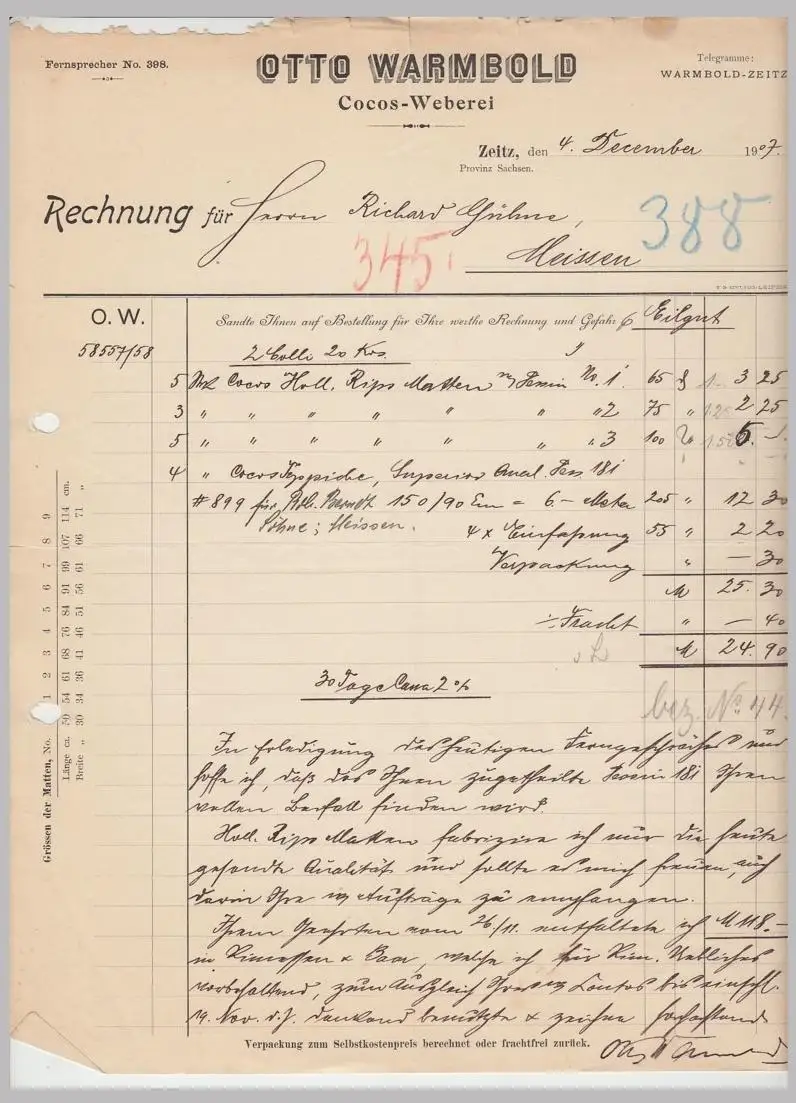 Fernsprecher No. 398.
OTTO WARMBOLD
Cocos-Weberei
Telegramme:
WARMBOLD-ZEITZ
Zeitz, den 4. December 1907.
Provinz Sachsen.
Rechnung für Herrn Richard Gühne,
388
345
Meissen
O. W.
Sandte Ihnen auf Bestellung für Ihre werthe Rechnung und Gefahr Eilgut
58557/58
2 Colli 20 Kos.
5 Cocos Holl. Rips Matten No. 1 65 3 25
3 " " " " " " " 2 75 " 2 25
5 " " " " " " " 3 100 " 5. –
4 " Cocos Teppiche, Superior 181
# 899 für Barndt 150/90 Em = 6.– Meter 205 " 12 30
Söhne; Meissen.
4 x Einfassung 55 " 2 20
Verpackung " – 30
M 25. 30
÷ Fracht " – 40
M 24. 90
30 Tage Cassa 2 %
bez. No. 44.
In Erledigung des heutigen Ferngespräches
hoffe ich, daß das Ihnen zugetheilte 181 Ihren
vollen Beifall finden wird.
Holl. Rips Matten fabrizire ich nur die heute
gesandte Qualität und sollte es mich freuen, auch
darin Ihre Aufträge zu empfangen.
Ihrem Geehrten vom 26/11. entfaltete ich M 118.–
in Rimessen & Baar, welche ich für Rim. Uebliches
vorbehaltend, zum Ausgleich Ihres Contos bis einschl.
19. Nov. d. J. dankend benützte & zeichne
Verpackung zum Selbstkostenpreis berechnet oder frachtfrei zurück.
Grössen der Matten, No. 1 2 3 4 5 6 7 8 9
Länge ca. 50 54 61 68 76 84 91 99 107 114 cm.
Breite " 30 34 36 41 46 51 56 61 66 71 "